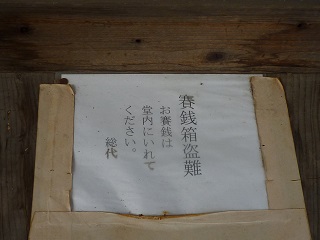 賽銭箱盗難
お賽銭は
堂内にいれて
ください。
総代